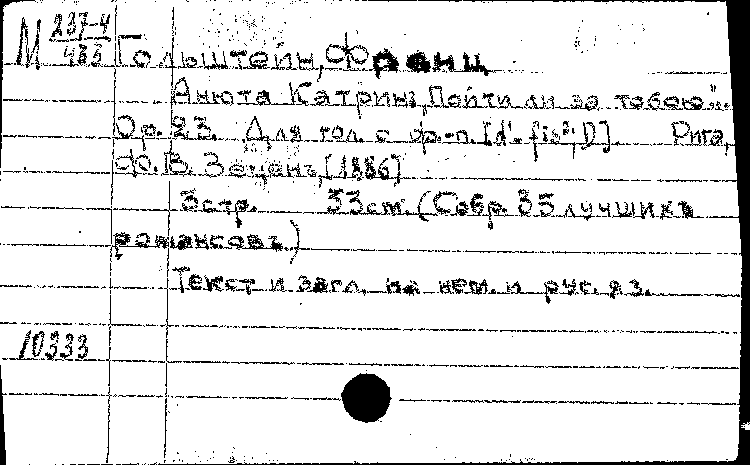 М 237-4/483
Гольштейн, Франц
Анюта Катринъ „Пойти ли за тобою“.
Op. 23. Для гол. с фр.-п. [d¹-fis², D]. Рига,
[1886]
3 стр. 33 см. (Собр. 35 лучшихъ
романсовъ.)
Текст и загл. на нем. и рус. яз.
10333